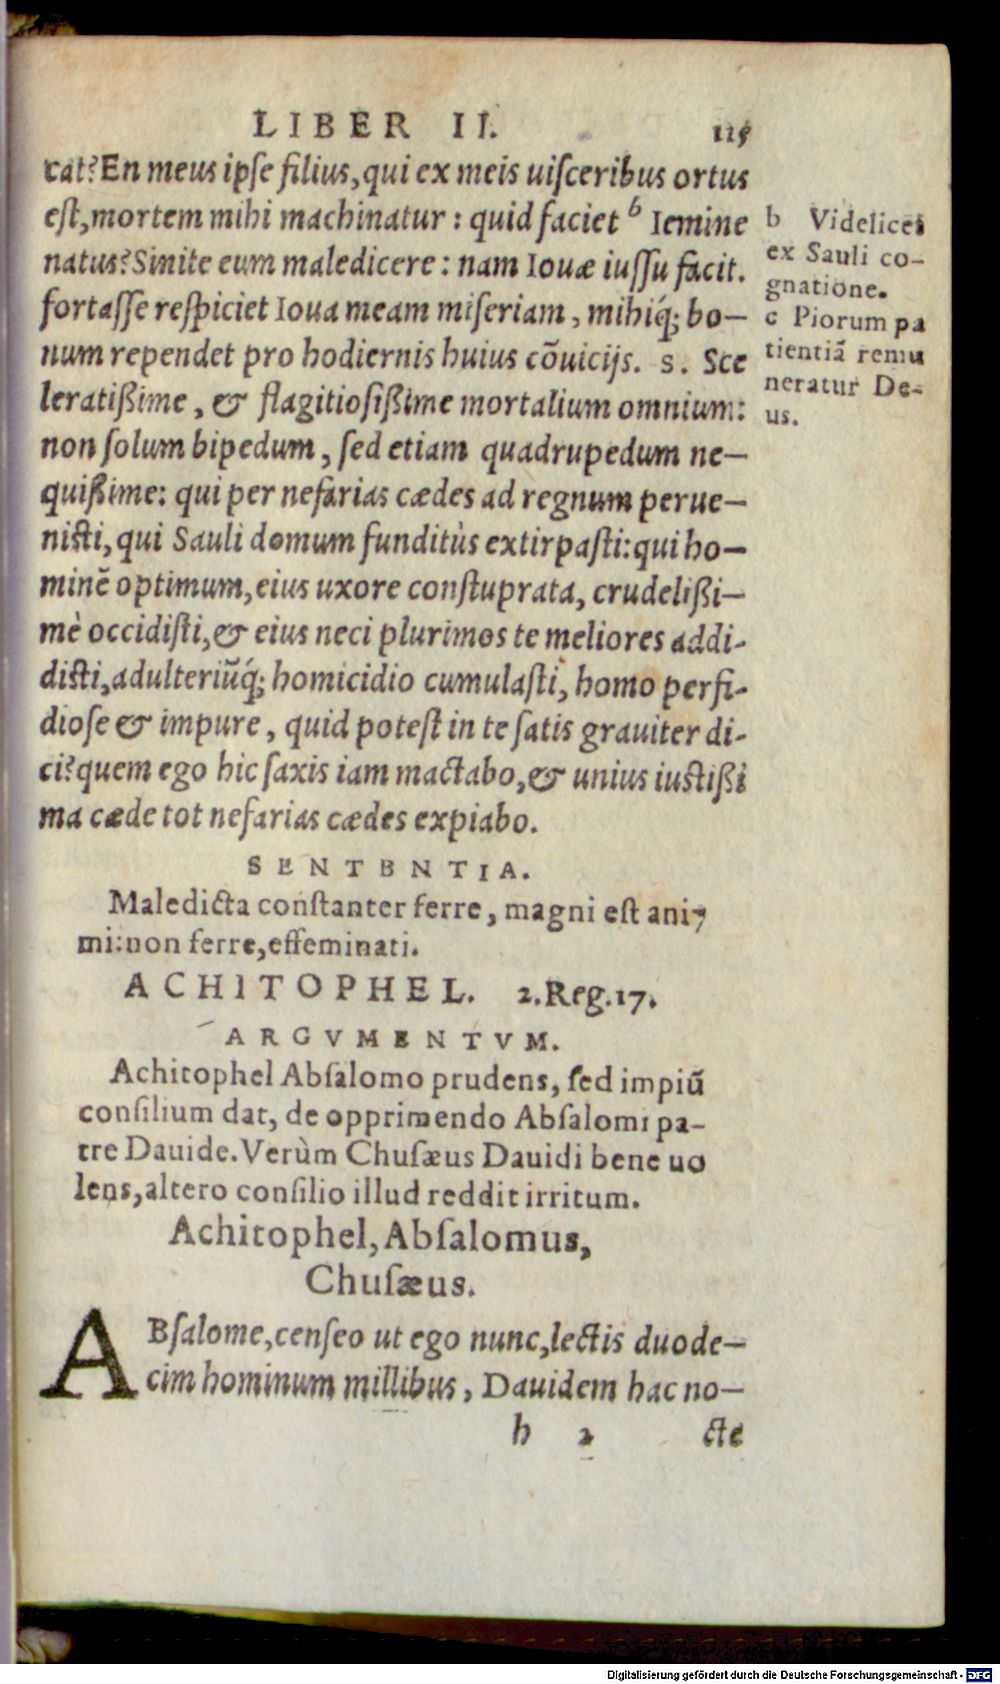 LIBER II. 115
cat? En meus ipse filius, qui ex meis uisceribus ortus
est, mortem mihi machinatur : quid faciet b Iemine
natus? Sinite eum maledicere : nam Iouæ iussu facit.
fortasse respiciet Ioua meam miseriam, mihiq́; bo-
num rependet pro hodiernis huius cõuicijs. S. Sce
leratißime, & flagitiosißime mortalium omnium:
non solum bipedum, sed etiam quadrupedum ne-
quißime: qui per nefarias cædes ad regnum perue-
nisti, qui Sauli domum funditùs extirpasti: qui ho-
minẽ optimum, eius uxore constuprata, crudelißi-
mè occidisti, & eius neci plurimos te meliores addi-
disti, adulteriũq́; homicidio cumulasti, homo perfi-
diose & impure, quid potest in te satis grauiter di-
ci? quem ego hic saxis iam mactabo, & unius iustißi
ma cæde tot nefarias cædes expiabo.
b Videlicet
ex Sauli co-
gnatione.
c Piorum pa
tientiã remu
neratur De-
us.
SENTBNTIA.
Maledicta constanter ferre, magni est ani-
mi: non ferre, effeminati.
ACHITOPHEL. 2. Reg. 17.
ARGVMENTVM.
Achitophel Absalomo prudens, sed impiũ
consilium dat, de opprimendo Absalomi pa-
tre Dauide. Verùm Chusæus Dauidi bene uo
lens, altero consilio illud reddit irritum.
Achitophel, Absalomus,
Chusæus.
ABsalome, censeo ut ego nunc, lectis duode-
cim hominum millibus, Dauidem hac no-
h 2 cte
Digitalisierung gefördert durch die Deutsche Forschungsgemeinschaft - DFG